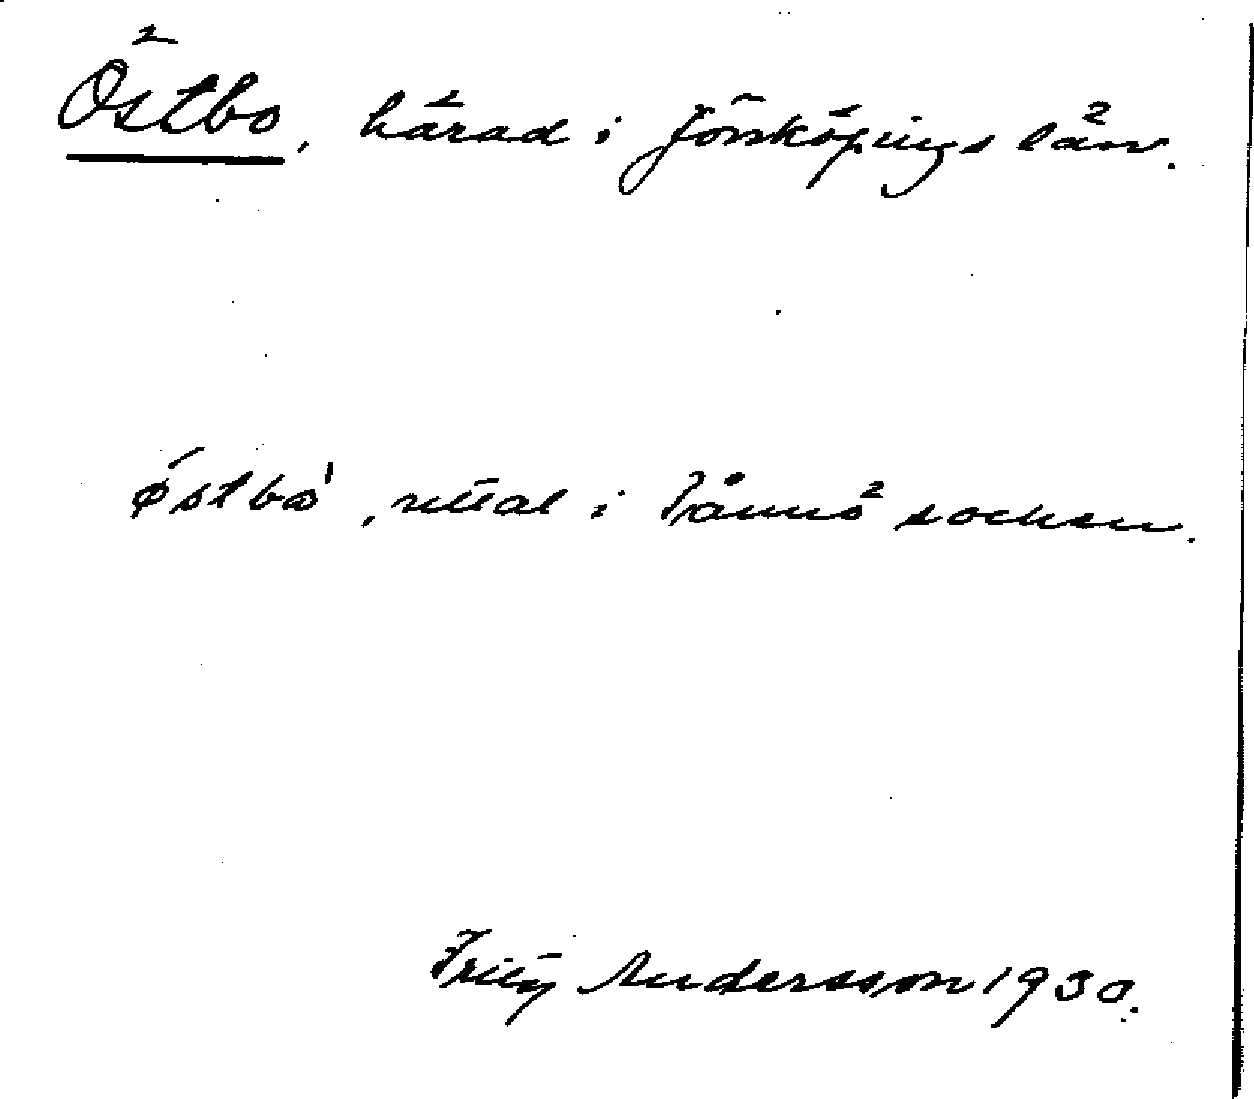 Östbo, härad i Jönköpings län.
östbo, uttal i Kånna socken.
Fritz Andersson 1930.